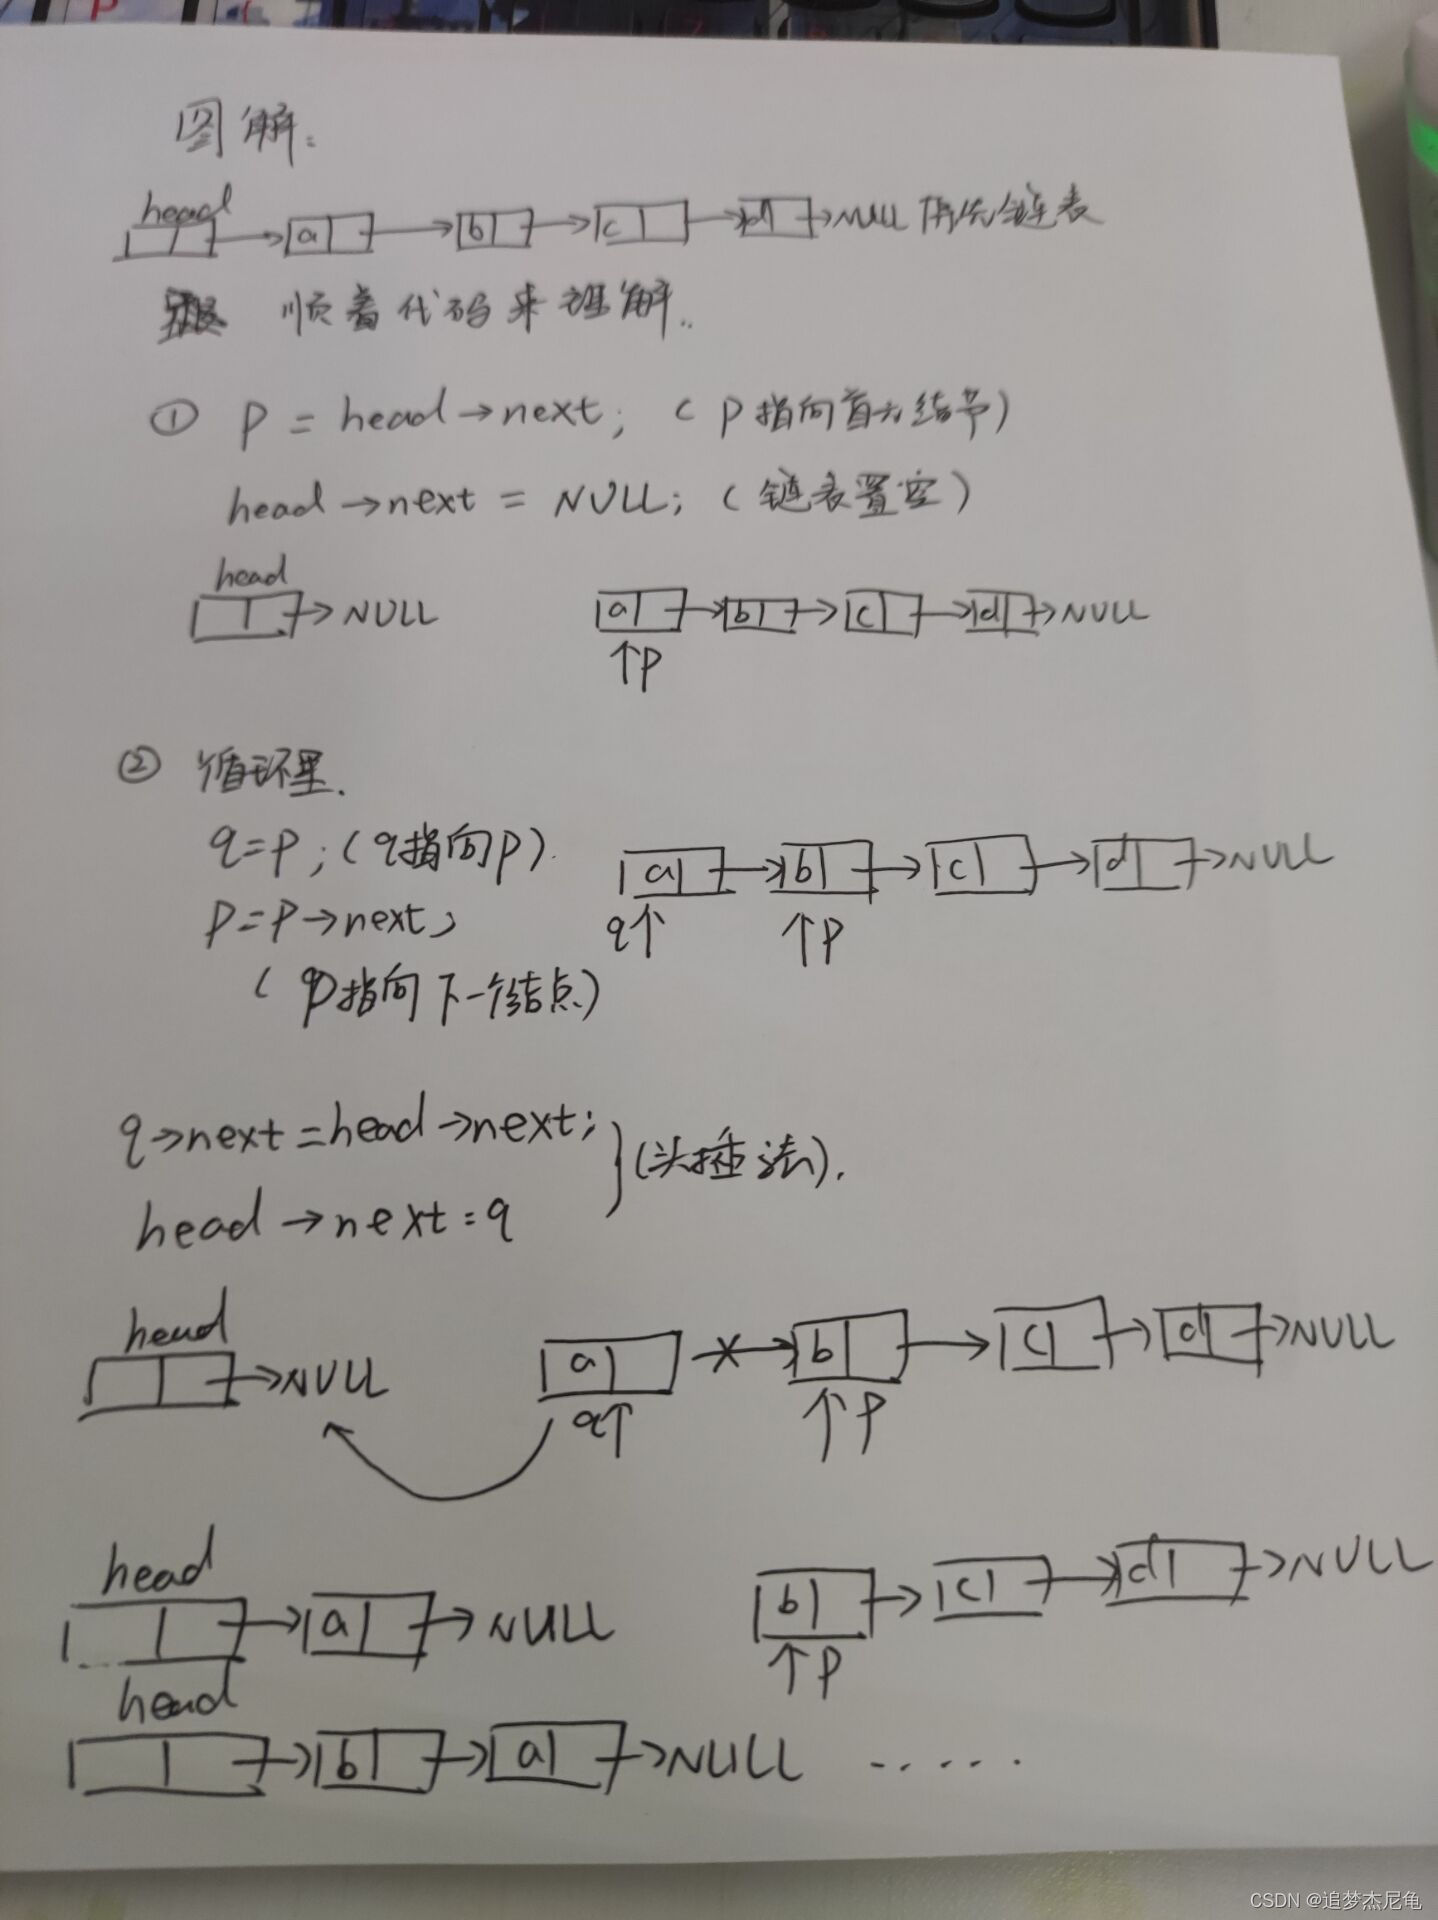 图解:
head
a b c d NULL 假优链表
顺着代码来理解..
① p = head→next; (p指向首元结节)
head→next = NULL; (链表置空)
head
NULL a b c d NULL
↑p
② 循环里.
q=p;(q指向p).
a b c d NULL
p=p→next;
q↑ ↑p
(p指向下一个结点)
q→next=head→next;
(头插法).
head→next=q
head
NULL a b c d NULL
q↑ ↑p
head
a NULL b c d NULL
↑p
head
b a NULL ......
CSDN @追梦杰尼龟